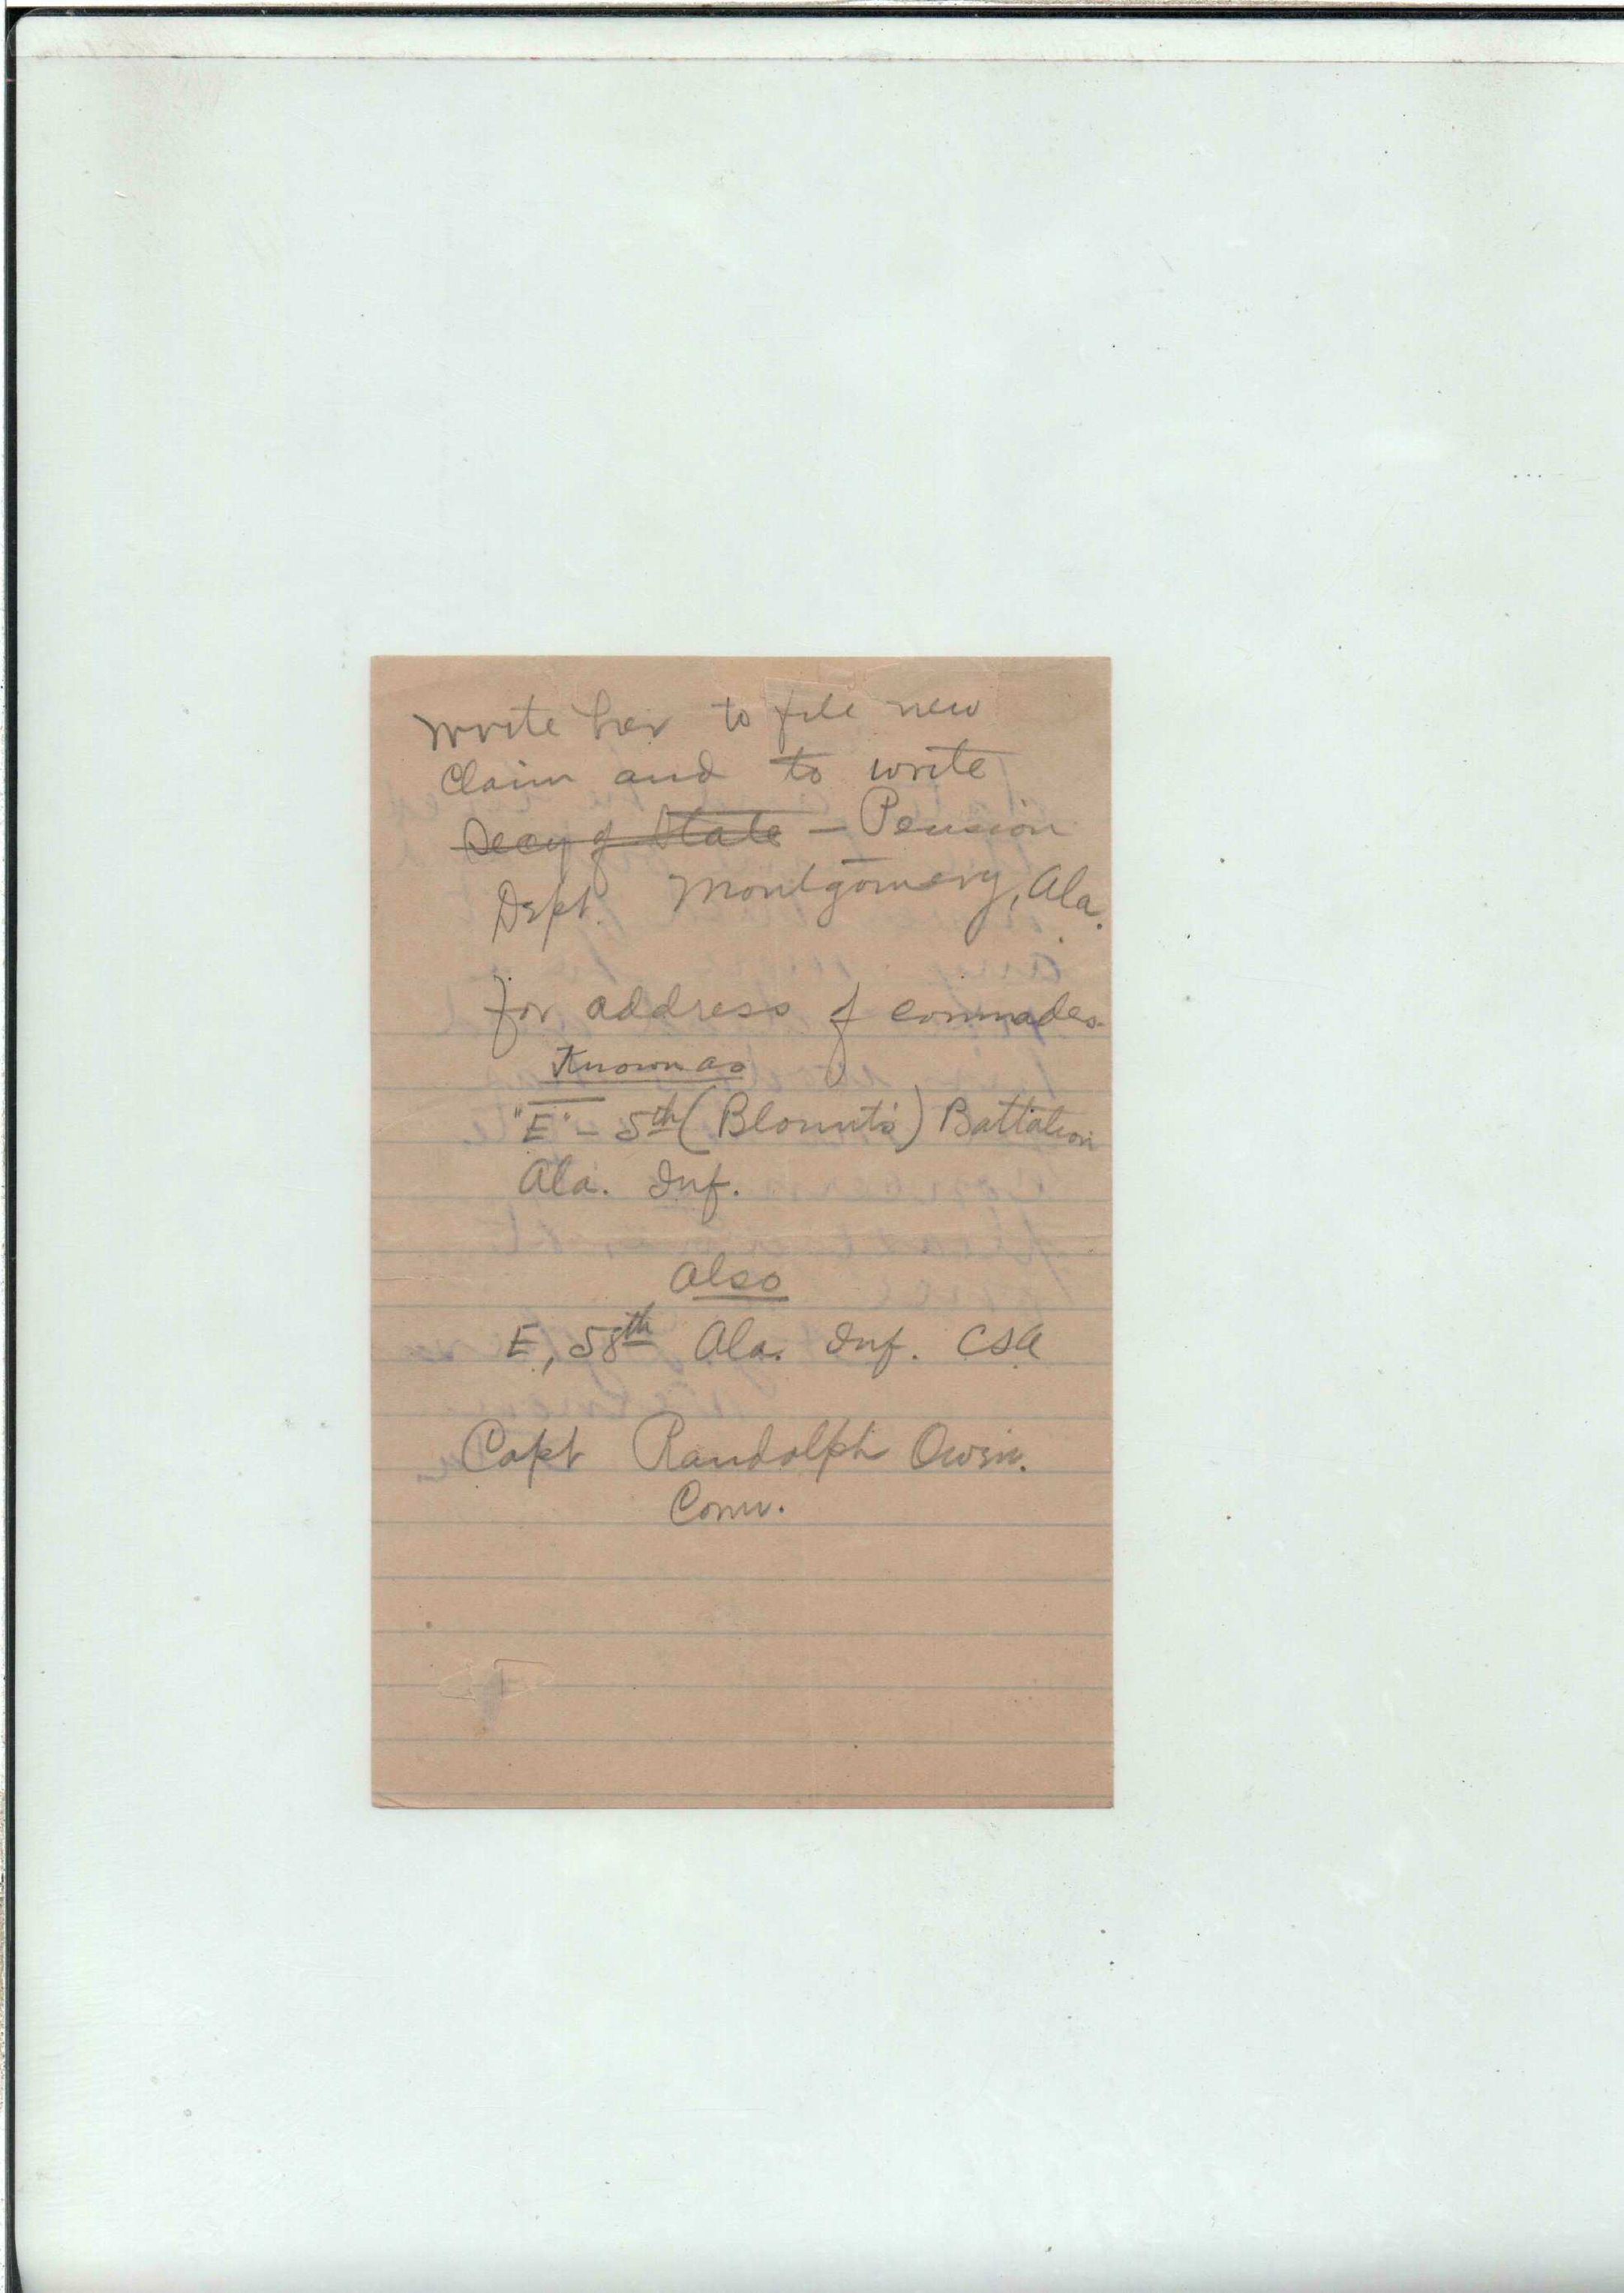 Write her to file new
Claim and to write
Secy of State — Pension
Dept. Montgomery, Ala.
for address of comrades.
Known as
"E" – 5th (Blount's) Battalion
Ala. Inf.
Also
E, 58th Ala. Inf. CSA
Capt Randolph Owen.
Com.